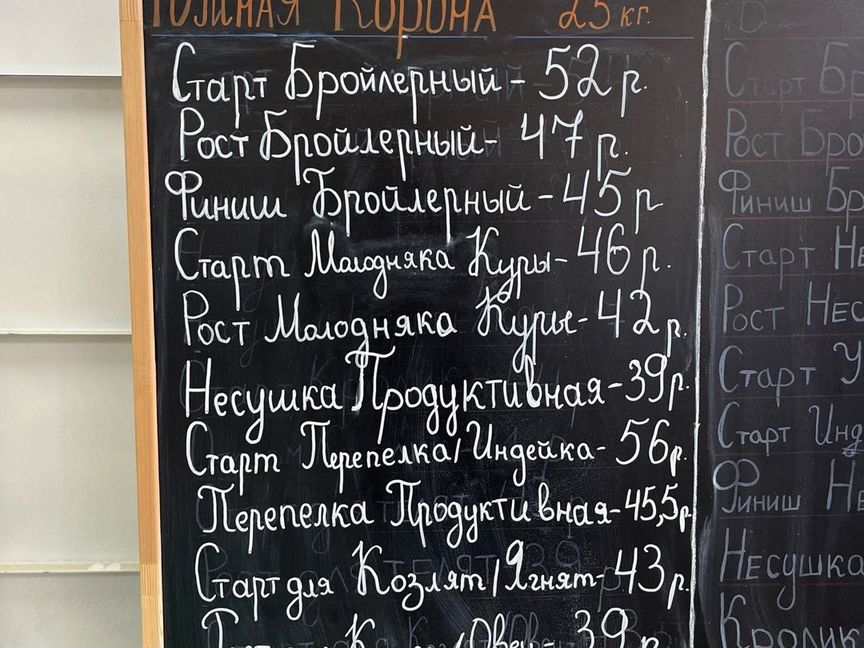 Корона 25 кг.
Старт Бройлерный - 52 р.
Рост Бройлерный - 47 р.
Финиш Бройлерный - 45 р
Старт Молодняка Куры - 46 р.
Рост Молодняка Куры - 42 р.
Несушка Продуктивная - 39 р.
Старт Перепелка/Индейка - 56 р.
Перепелка Продуктивная - 45,5 р
Старт для Козлят/Ягнят - 43 р.
39 р.
Старт
Рост
Финиш
Старт
Рост
Старт
Старт
Финиш
Несушка